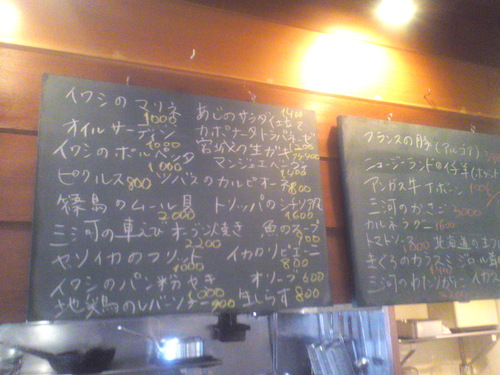 イワシのマリネ 1000
オイルサーディン 1000
イワシのポルペッタ 1000
ピクルス 800
篠島のムール貝 2000
三河の車えび オーブン焼き 2200
ヤリイカのフリット 1000
イワシのパン粉やき
地鶏のレバーソテー 900
あじのサンダイユ仕立て 1400
カポナータトラパネーゼ 1200
宮城の生ガキ
マンジェエベーヴェ
ツバスのカルピオーネ 800
トリッパのシチリア風 1600
魚のスープ 900
イカのリピエーニ 800
オリーブ 600
生しらす 800
フランスの豚
ニュージーランドの仔羊
アンガス牛Tボーン
三河のかさご 3000
カルトッチョ 1600
トマトソース 1800
北海道の
まぐろのカラスミ
三河のわたりがに